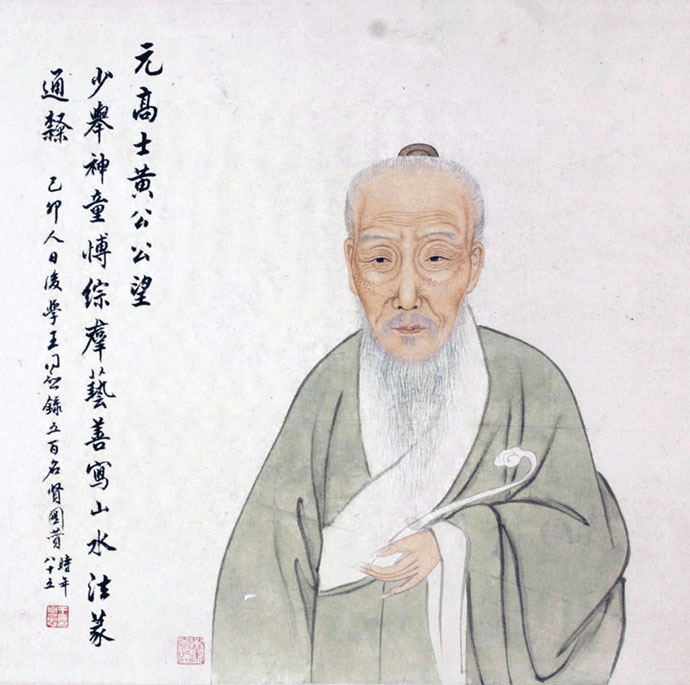 元高士黄公公望
少舉神童愽綜羣藝善寫山水法篆
通隸
己卯人日後學王同愈錄五百名賢圖贊
時年
八十五